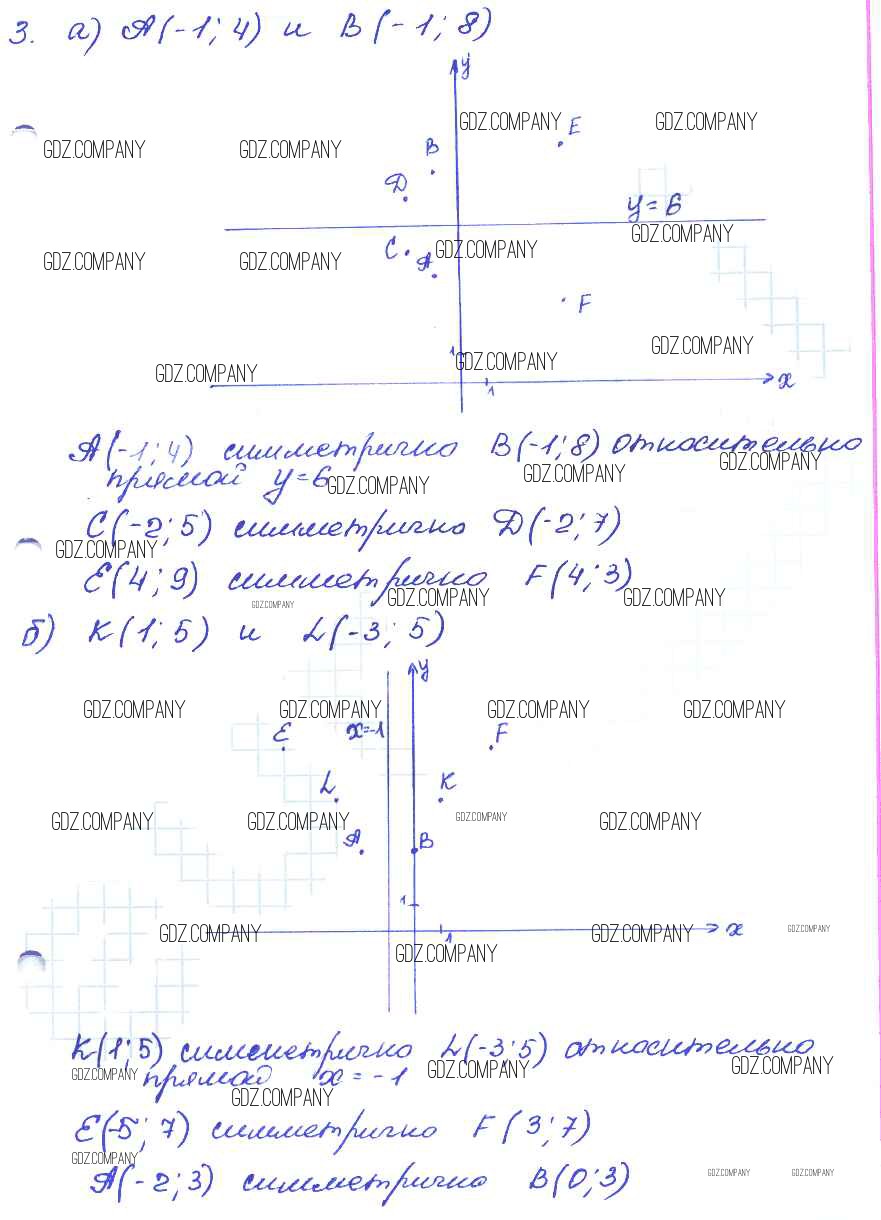 3. а) A(-1; 4) и B(-1; 8)
y
GDZ.COMPANY E GDZ.COMPANY
GDZ.COMPANY GDZ.COMPANY B
D
y=6
GDZ.COMPANY
C A GDZ.COMPANY
GDZ.COMPANY GDZ.COMPANY
F
1 GDZ.COMPANY GDZ.COMPANY
GDZ.COMPANY
1 x
A(-1; 4) симметрично B(-1; 8) относительно
GDZ.COMPANY GDZ.COMPANY
прямой y=6 GDZ.COMPANY
C(-2; 5) симметрично D(-2; 7)
GDZ.COMPANY
E(4; 9) симметрично F(4; 3)
GDZ.COMPANY GDZ.COMPANY GDZ.COMPANY
б) K(1; 5) и L(-3; 5)
y
GDZ.COMPANY GDZ.COMPANY GDZ.COMPANY GDZ.COMPANY
E x=-1 F
L K
GDZ.COMPANY GDZ.COMPANY GDZ.COMPANY GDZ.COMPANY
A B
1
GDZ.COMPANY 1 GDZ.COMPANY x GDZ.COMPANY
GDZ.COMPANY
K(1; 5) симметрично L(-3; 5) относительно
GDZ.COMPANY прямой x = -1 GDZ.COMPANY GDZ.COMPANY
GDZ.COMPANY
E(-5; 7) симметрично F(3; 7)
GDZ.COMPANY
A(-2; 3) симметрично B(0; 3) GDZ.COMPANY GDZ.COMPANY